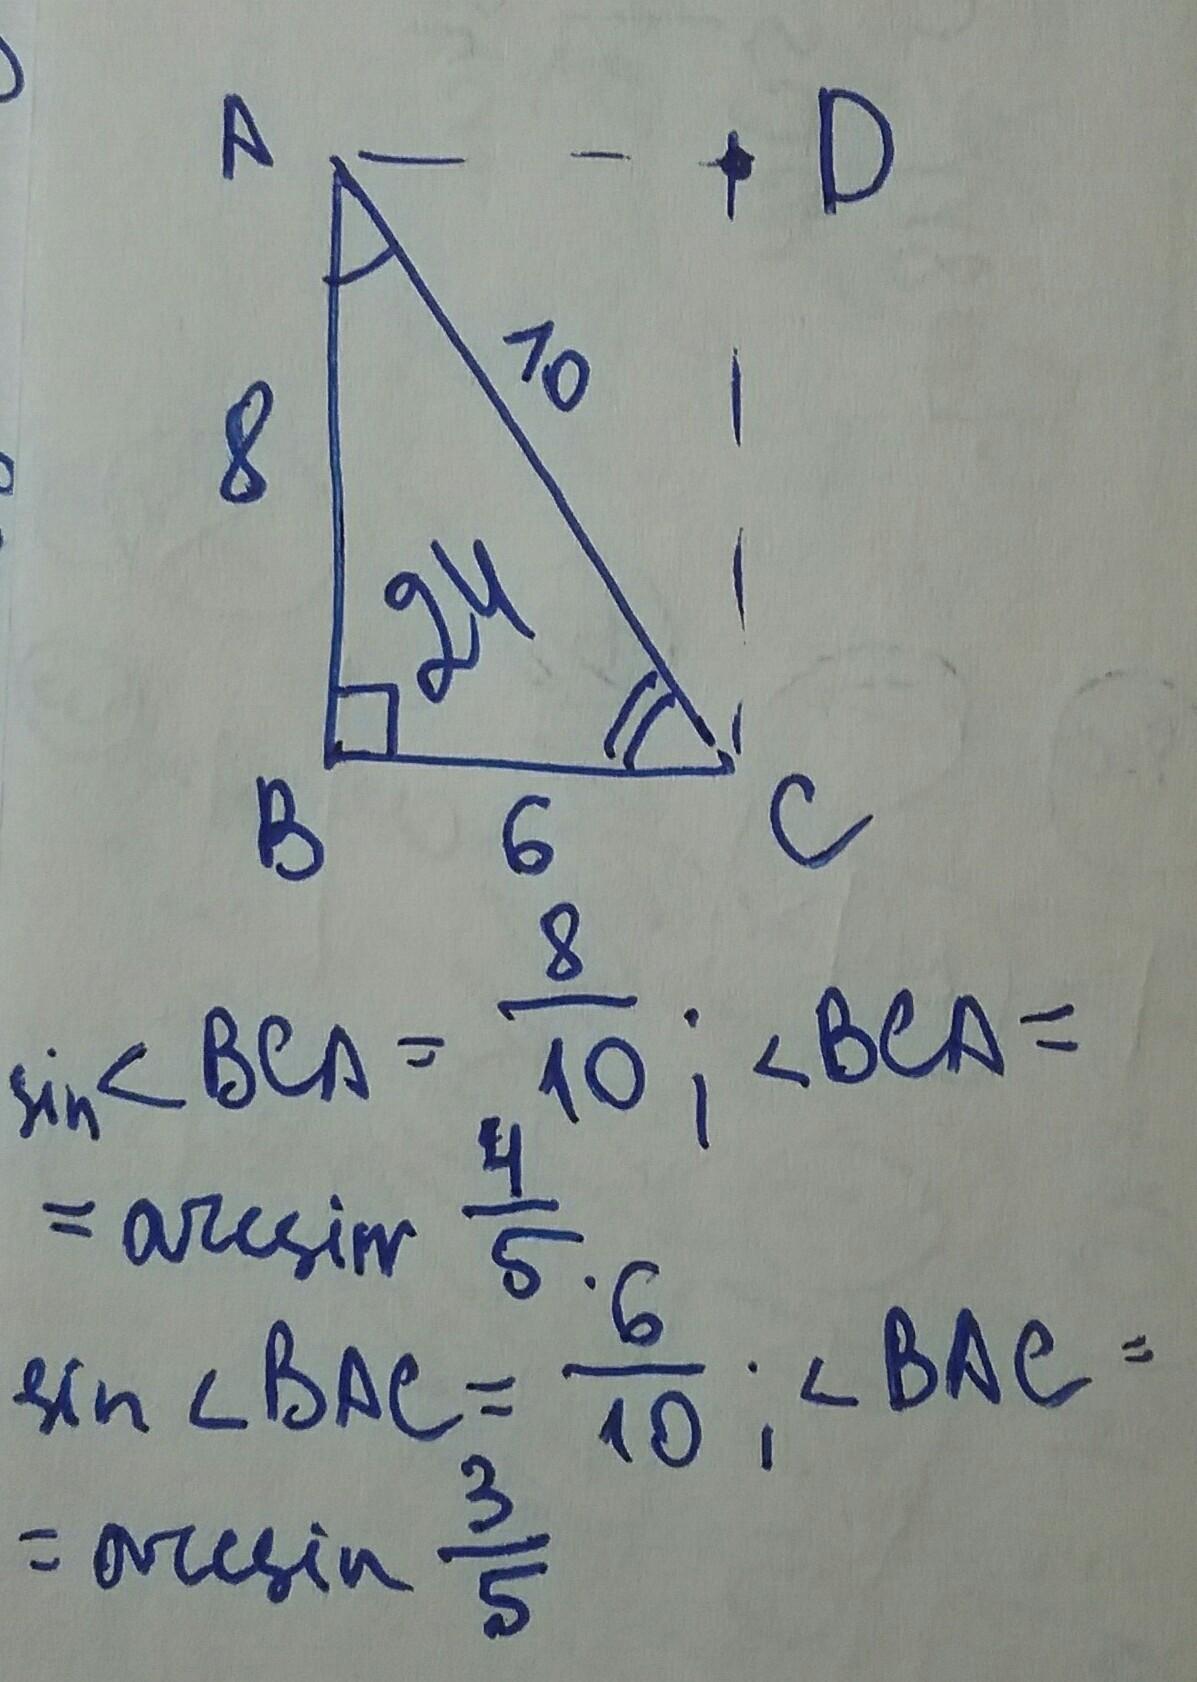 A D
10
8
24
B 6 C
sin<BCA = 8/10 ; <BCA =
= arcsin 4/5 .
sin <BAC = 6/10 ; <BAC =
= arcsin 3/5